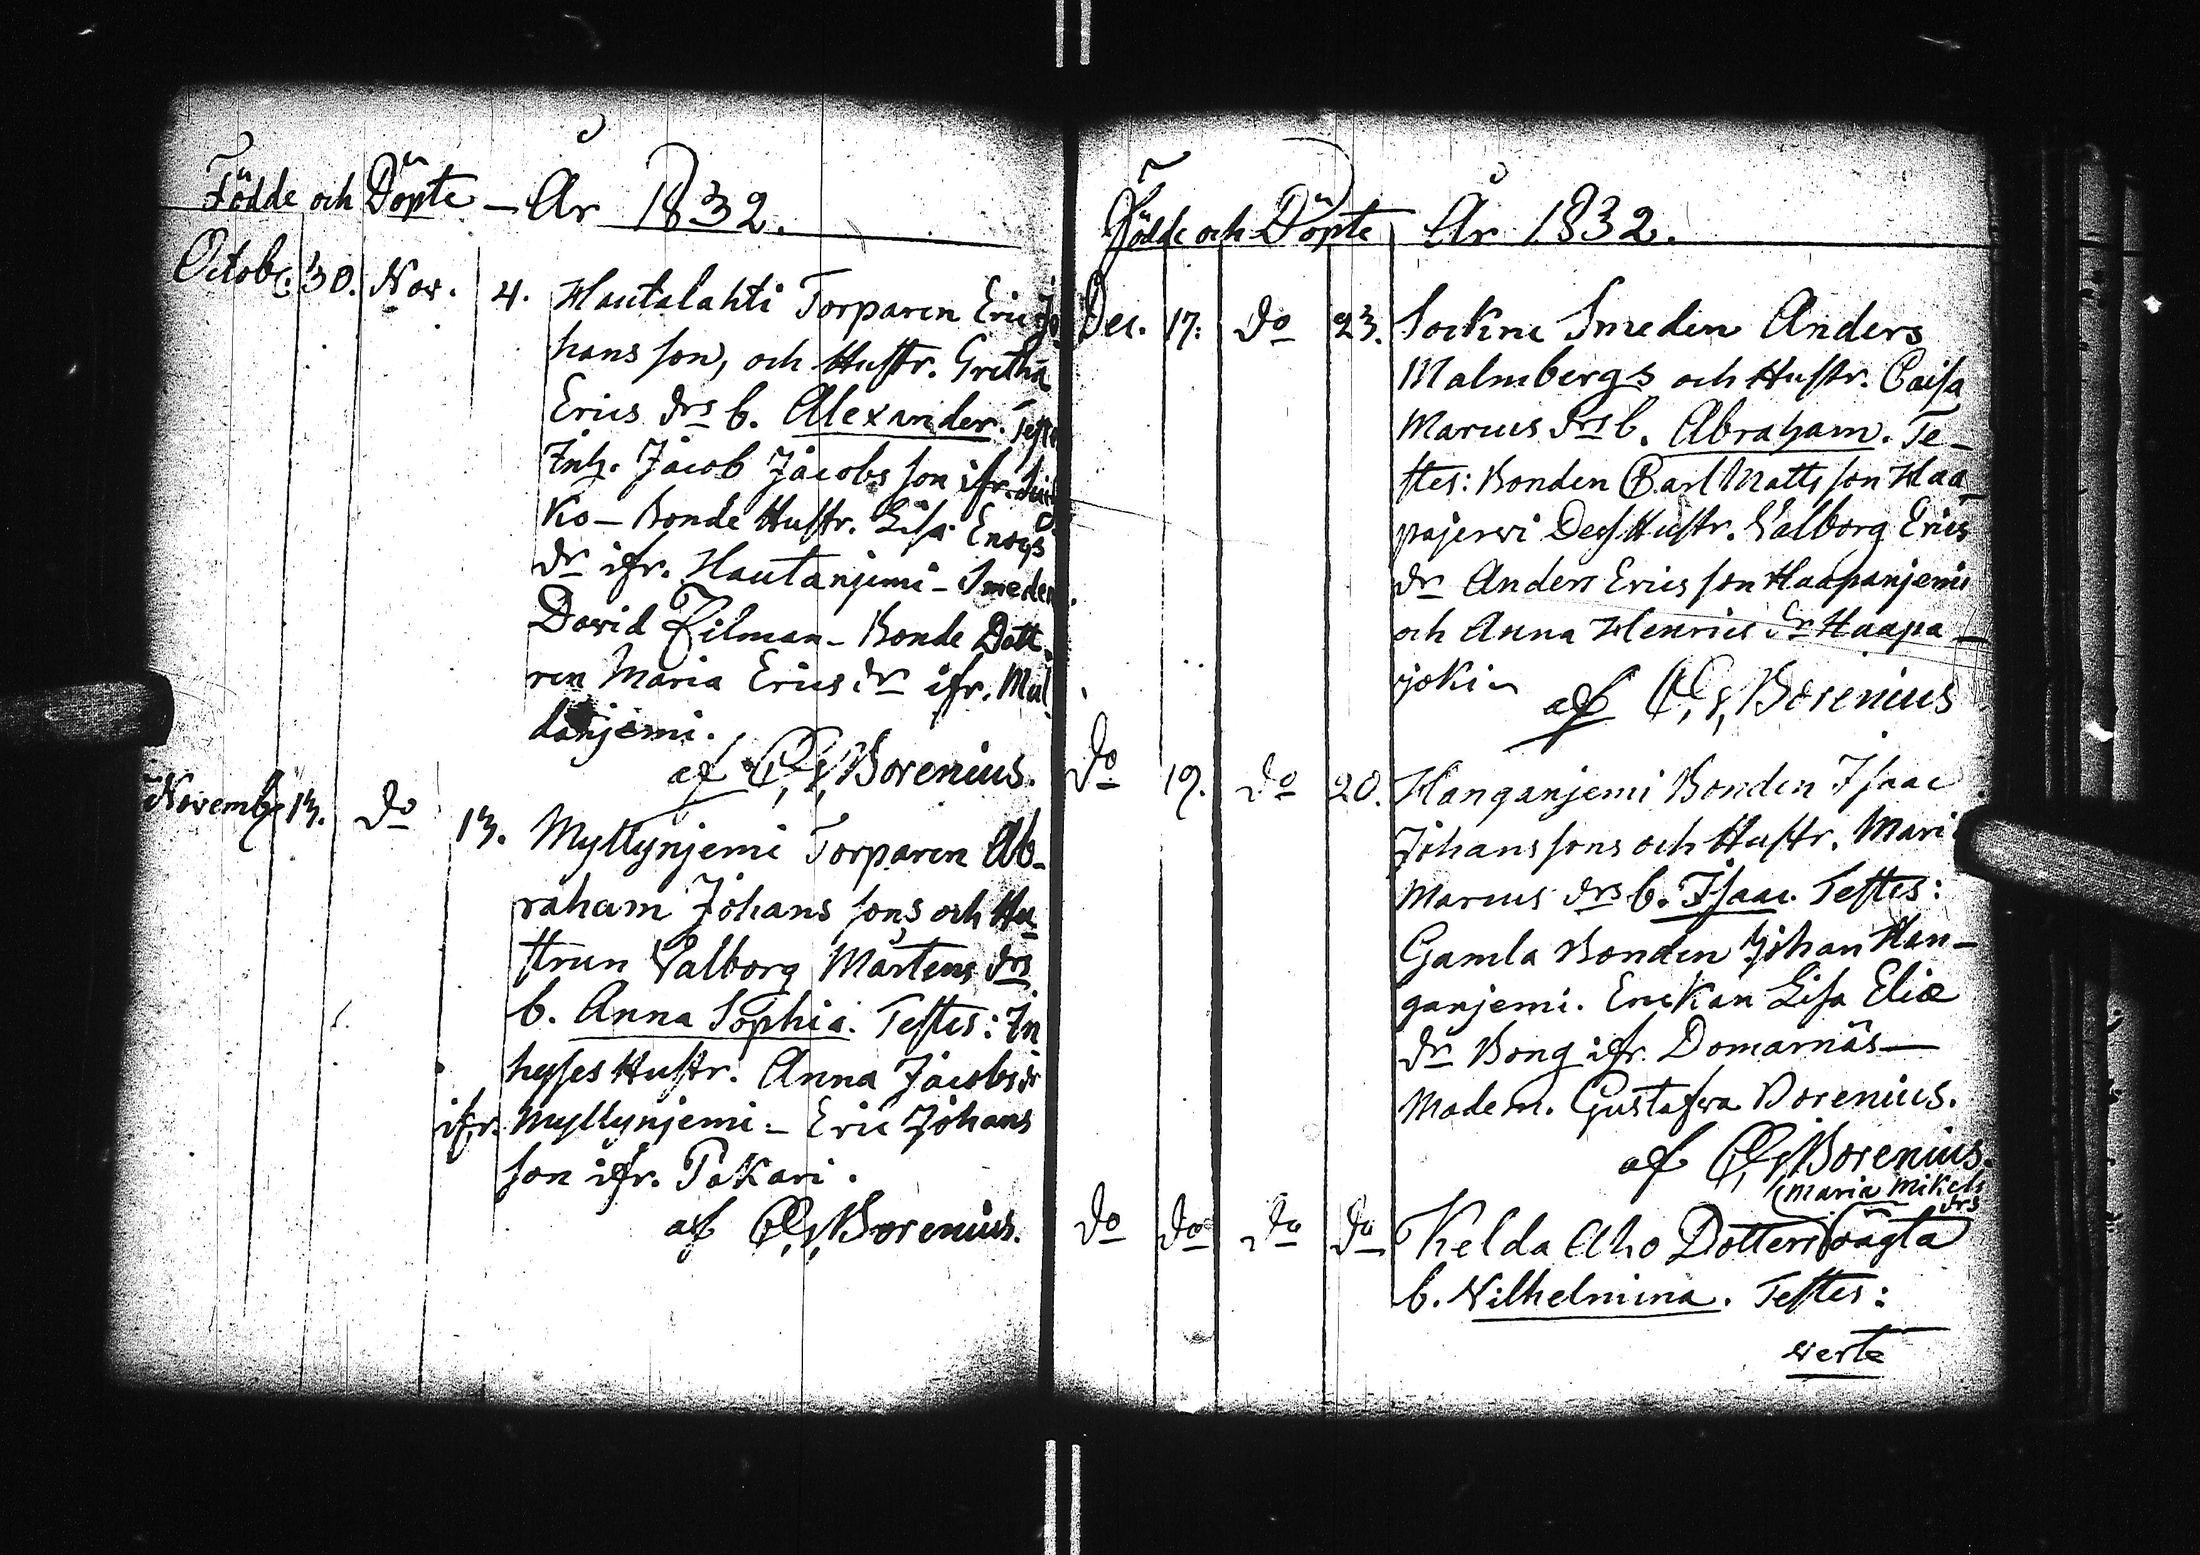 Födde och Döpte — År 1832.
Octobr. 30. Nov. 4. Hautalahti Torparen Eric Jo
hans son, och Hustr. Gretha
Erics drs b. Alexander. Teste
Inh. Jacob Jacobs son ifr.
ko — Bonde Hustr. Lisa Enogs
dr ifr. Hautanjemi — Smeden
David Zilman — Bonde Dott
ren Maria Erics dr ifr. Mul
danjemi.
af C. G. Borenius.
Novembr 13. do 13. Myllynjemi Torparen Ab-
raham Johans sons och Hu
strun Valborg Mårtens drs
b. Anna Sophia. Testes: In
hyses Hustr. Anna Jacobs dr
ifr. Myllynjemi — Eric Johans
son ifr. Pakari.
af C. G. Borenius.
Födde och Döpte År 1832.
Dec. 17. do 23. Sockne Smeden Anders
Malmbergs och Hustr. Caisa
Marcus drs b. Abraham. Te-
stes: Bonden Carl Matts son Haa
pajerwi Dess Hustr. Valborg Erics
dr Anders Erics son Haapanjemi
och Anna Henrics dr Haapa —
joki —
af C. G. Borenius
do 19. do 20. Hanganjemi Bonden Isaac
Johans sons och Hustr. Mari
Marcus drs b. Isaac. Testes:
Gamla Bonden Johan Han-
ganjemi. Enckan Lisa Eliæ
dr Bong ifr. Domarnäs —
Madem. Gustafwa Borenius.
af C. G. Borenius.
Maria Mikels
drs
do do do do Kelda Aho Dotters oägta
b. Wilhelmina. Testes:
verte